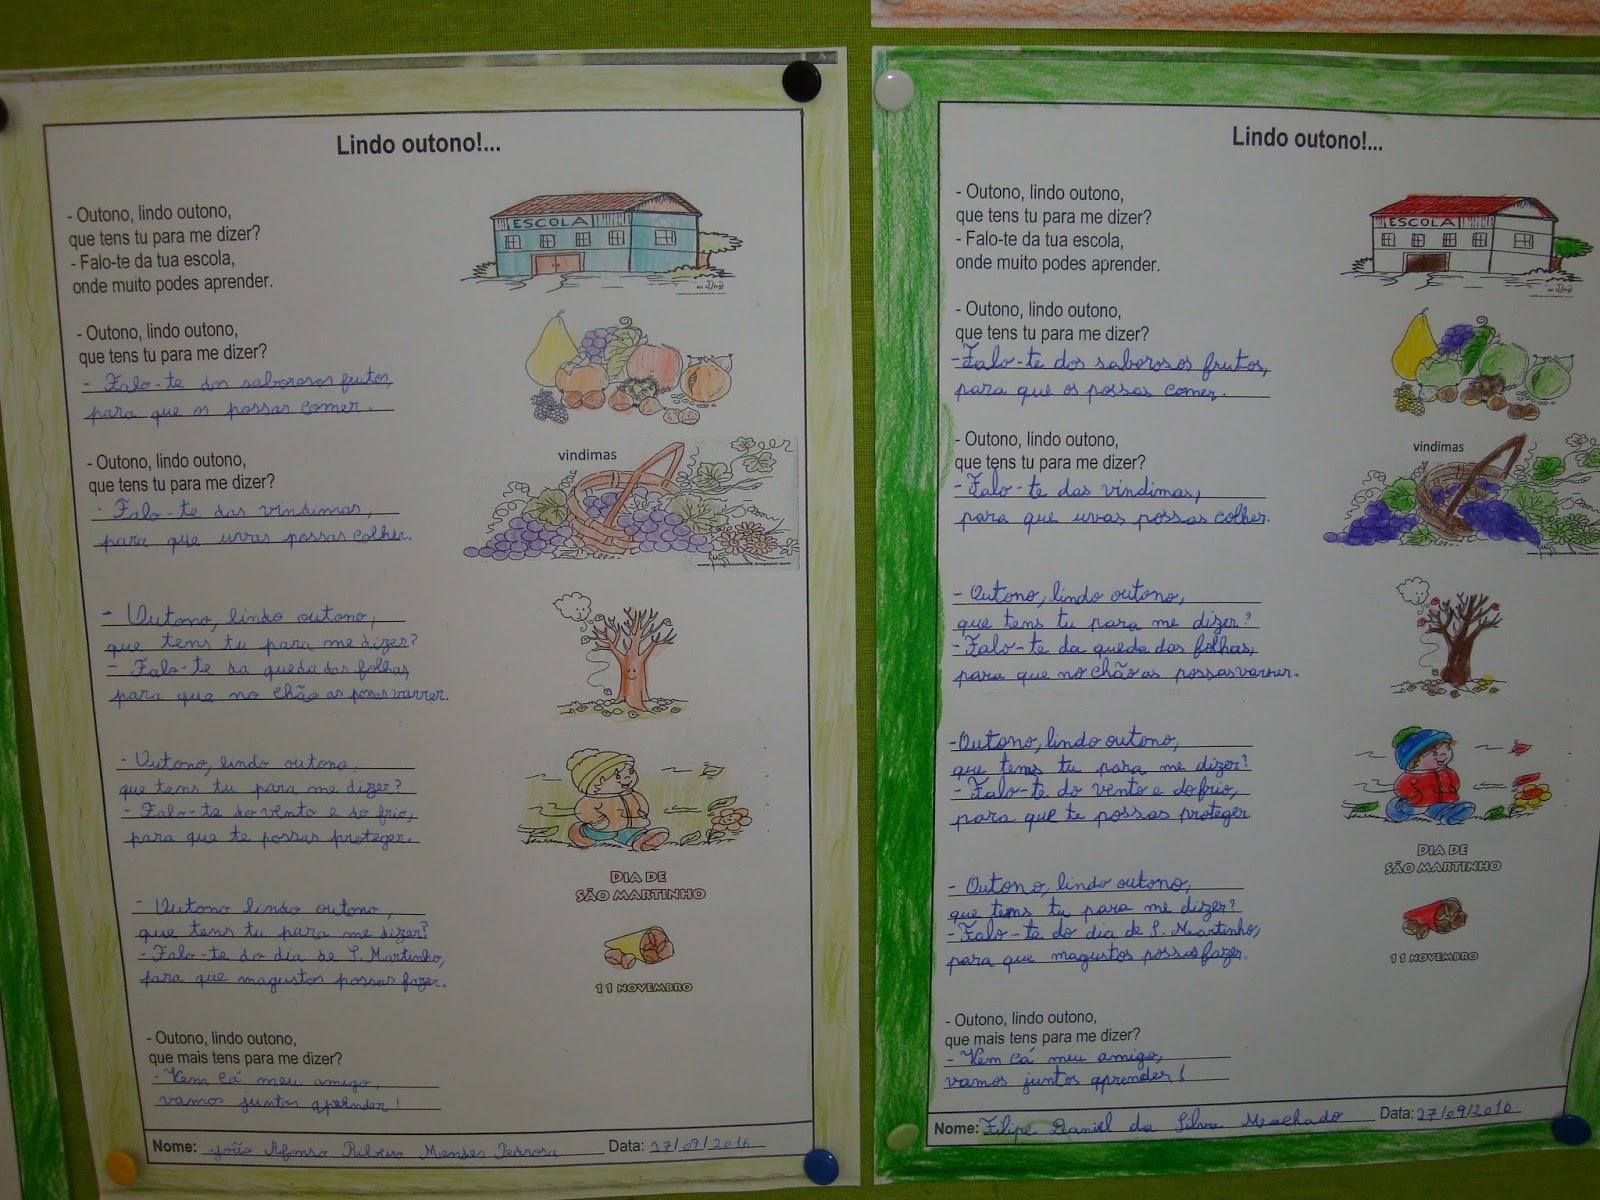 Lindo outono!...
- Outono, lindo outono,
que tens tu para me dizer?
- Falo-te da tua escola,
onde muito podes aprender.
ESCOLA
- Outono, lindo outono,
que tens tu para me dizer?
- Falo-te dos saborosos frutos,
para que os possas comer.
- Outono, lindo outono,
que tens tu para me dizer?
- Falo-te das vindimas,
para que uvas possas colher.
vindimas
- Outono, lindo outono,
que tens tu para me dizer?
- Falo-te da queda das folhas,
para que no chão as possas varrer.
- Outono, lindo outono,
que tens tu para me dizer?
- Falo-te do vento e do frio,
para que te possas proteger.
DIA DE
SÃO MARTINHO
- Outono lindo outono,
que tens tu para me dizer?
- Falo-te do dia de S. Martinho,
para que magustos possas fazer.
11 NOVEMBRO
- Outono, lindo outono,
que mais tens para me dizer?
- Vem cá meu amigo,
vamos juntos aprender!
Nome: João Afonso Ribeiro Mendes Pedrosa Data: 27/09/2016
Lindo outono!...
- Outono, lindo outono,
que tens tu para me dizer?
- Falo-te da tua escola,
onde muito podes aprender.
ESCOLA
- Outono, lindo outono,
que tens tu para me dizer?
- Falo-te dos saborosos frutos,
para que os possas comer.
- Outono, lindo outono,
que tens tu para me dizer?
- Falo-te das vindimas,
para que uvas possas colher.
vindimas
- Outono, lindo outono,
que tens tu para me dizer?
- Falo-te da queda das folhas,
para que no chão as possas varrer.
- Outono, lindo outono,
que tens tu para me dizer?
- Falo-te do vento e do frio,
para que te possas proteger.
DIA DE
SÃO MARTINHO
- Outono, lindo outono,
que tens tu para me dizer?
- Falo-te do dia de S. Martinho,
para que magustos possas fazer.
11 NOVEMBRO
- Outono, lindo outono,
que mais tens para me dizer?
- Vem cá meu amigo,
vamos juntos aprender!
Nome: Filipe Daniel da Silva Machado Data: 27/09/2016